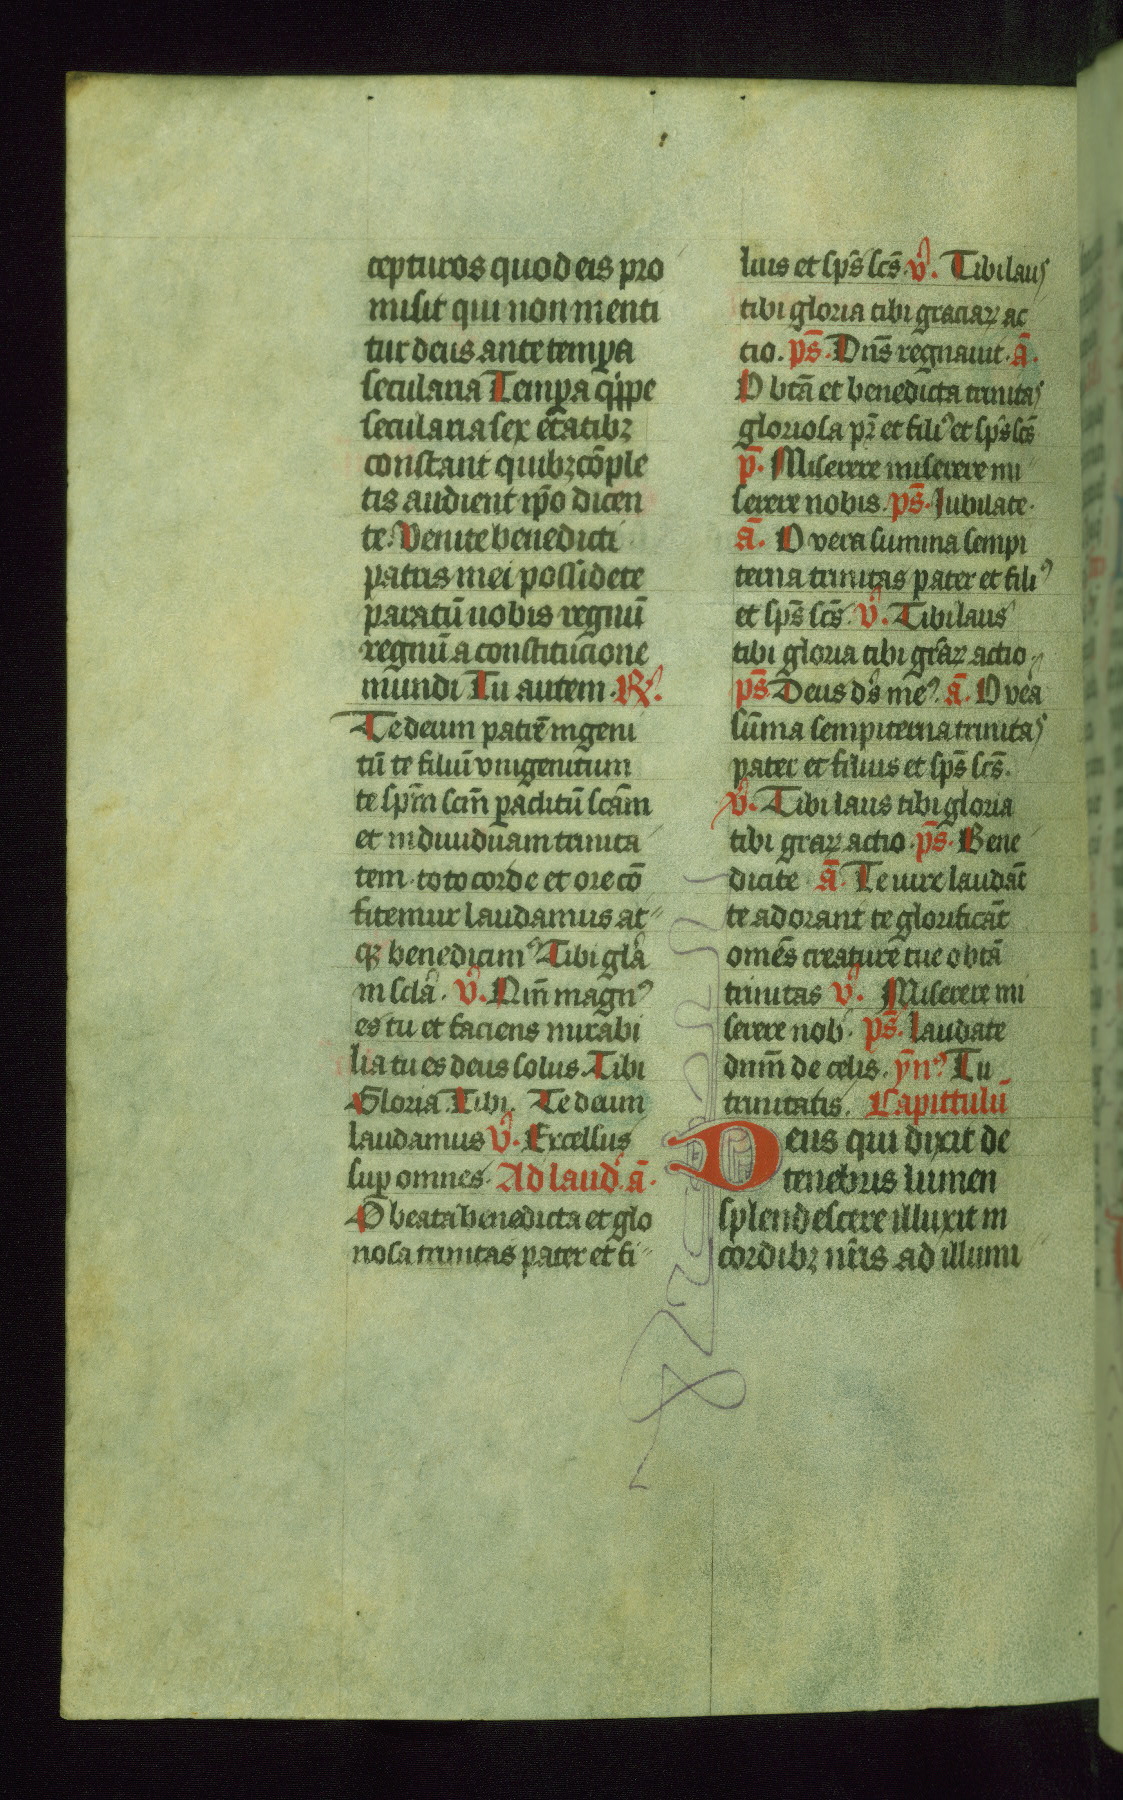 cepturos quod eis pro
misit qui non menti
tur deus ante tempa
secularia Tempa qippe
secularia sex etatibꝫ
constant quibꝫ cōple
tis audient xp̄o dicen
te. Venite benedicti
patris mei possidete
paratū uobis regnū
regnū a constitucione
mundi Tu autem. R̷.
Te deum patrē ingeni
tū te filiū vnigenitum
te sp̄m scm̄ paclitū scām
et indiuiduam trinita
tem toto corde et ore cō
fitemur laudamus at⸗
qꝫ benedicimꝰ Tibi glā
in sclā. v̉. Qm̄ magnꝰ
es tu et faciens mirabi
lia tu es deus solus. Tibi
Gloria Tibi. Te deum
laudamus v̉. Excelsus
sup omnes. Ad laud. ā.
O beata benedicta et glo
riosa trinitas pater et fi⸗
lius et sp̄s scs̄. v̉. Tibi laus
tibi gloria tibi graciaꝝ ac
tio. ps̄. Dns̄ regnauit. ā.
O btā et benedicta trinitas
gloriosa pr̄ et filiꝰ et sp̄s scs̄
p̄. Miserere miserere mi
serere nobis. ps̄. Iubilate.
ā. O vera summa sempi
terna trinitas pater et filiꝰ
et sp̄s scs̄. v̉. Tibi laus
tibi gloria tibi grāꝝ actio.
ps̄ Deus ds̄ meꝰ. ā. O vea
sūma sempiterna trinitas
pater et filius et sp̄s scs̄.
v̉. Tibi laus tibi gloria
tibi graꝝ actio. ps̄. Bene
dicite ā. Te iure laudāt
te adorant te glorificāt
omēs creature tue o btā
trinitas v̉. Miserere mi
serere nob. ps̄. Laudate
dnm̄ de celis. ȳnꝰ Tu
trinitatis. Capittulū
Deus qui dixit de
tenebris lumen
splendescere illuxit in
cordibꝫ nr̄is ad illumi